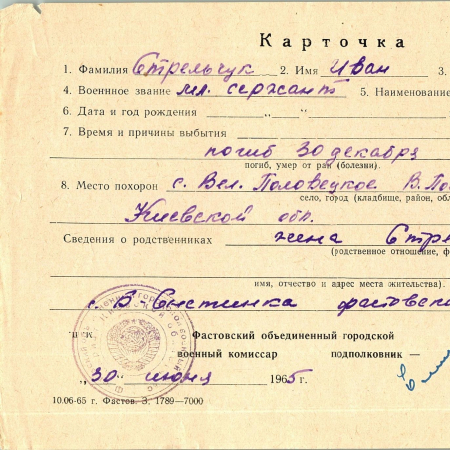 Карточка
1. Фамилия Стрельчук 2. Имя Иван 3.
4. Военнное звание мл. сержант 5. Наименование
6. Дата и год рождения
7. Время и причины выбытия
погиб 30 декабря
погиб, умер от ран (болезни).
8. Место похорон с. Вел. Половецкое В. По
село, город (кладбище, район, обл
Киевской обл.
Сведения о родственниках жена Стре
(родственное отношение, ф
имя, отчество и адрес места жительства).
с. В-Снетинка фастовско
М.П. Фастовский объединенный городской
военный комиссар подполковник —
„30" июня 1965 г.
10.06-65 г. Фастов. З. 1789—7000